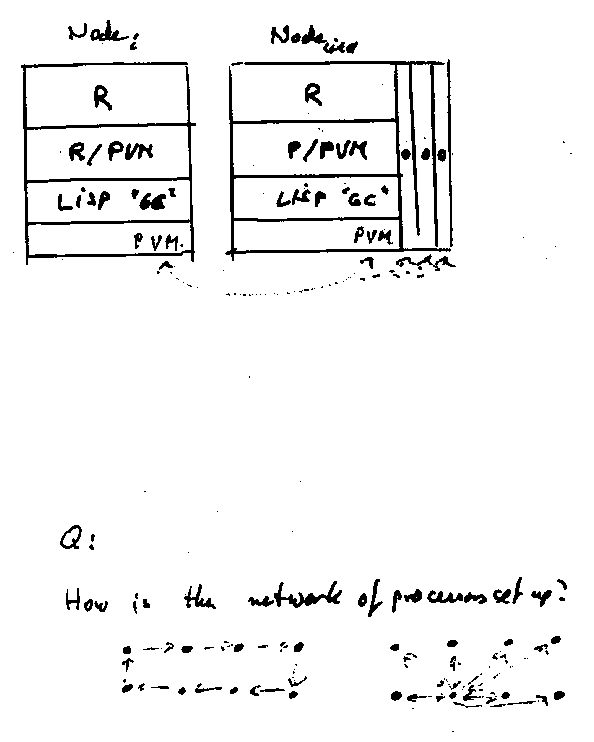 Node i
R
R/PVM
LISP "GC"
PVM.
Node
R
P/PVM
LISP "GC"
PVM
Q:
How is the network of processors set up?